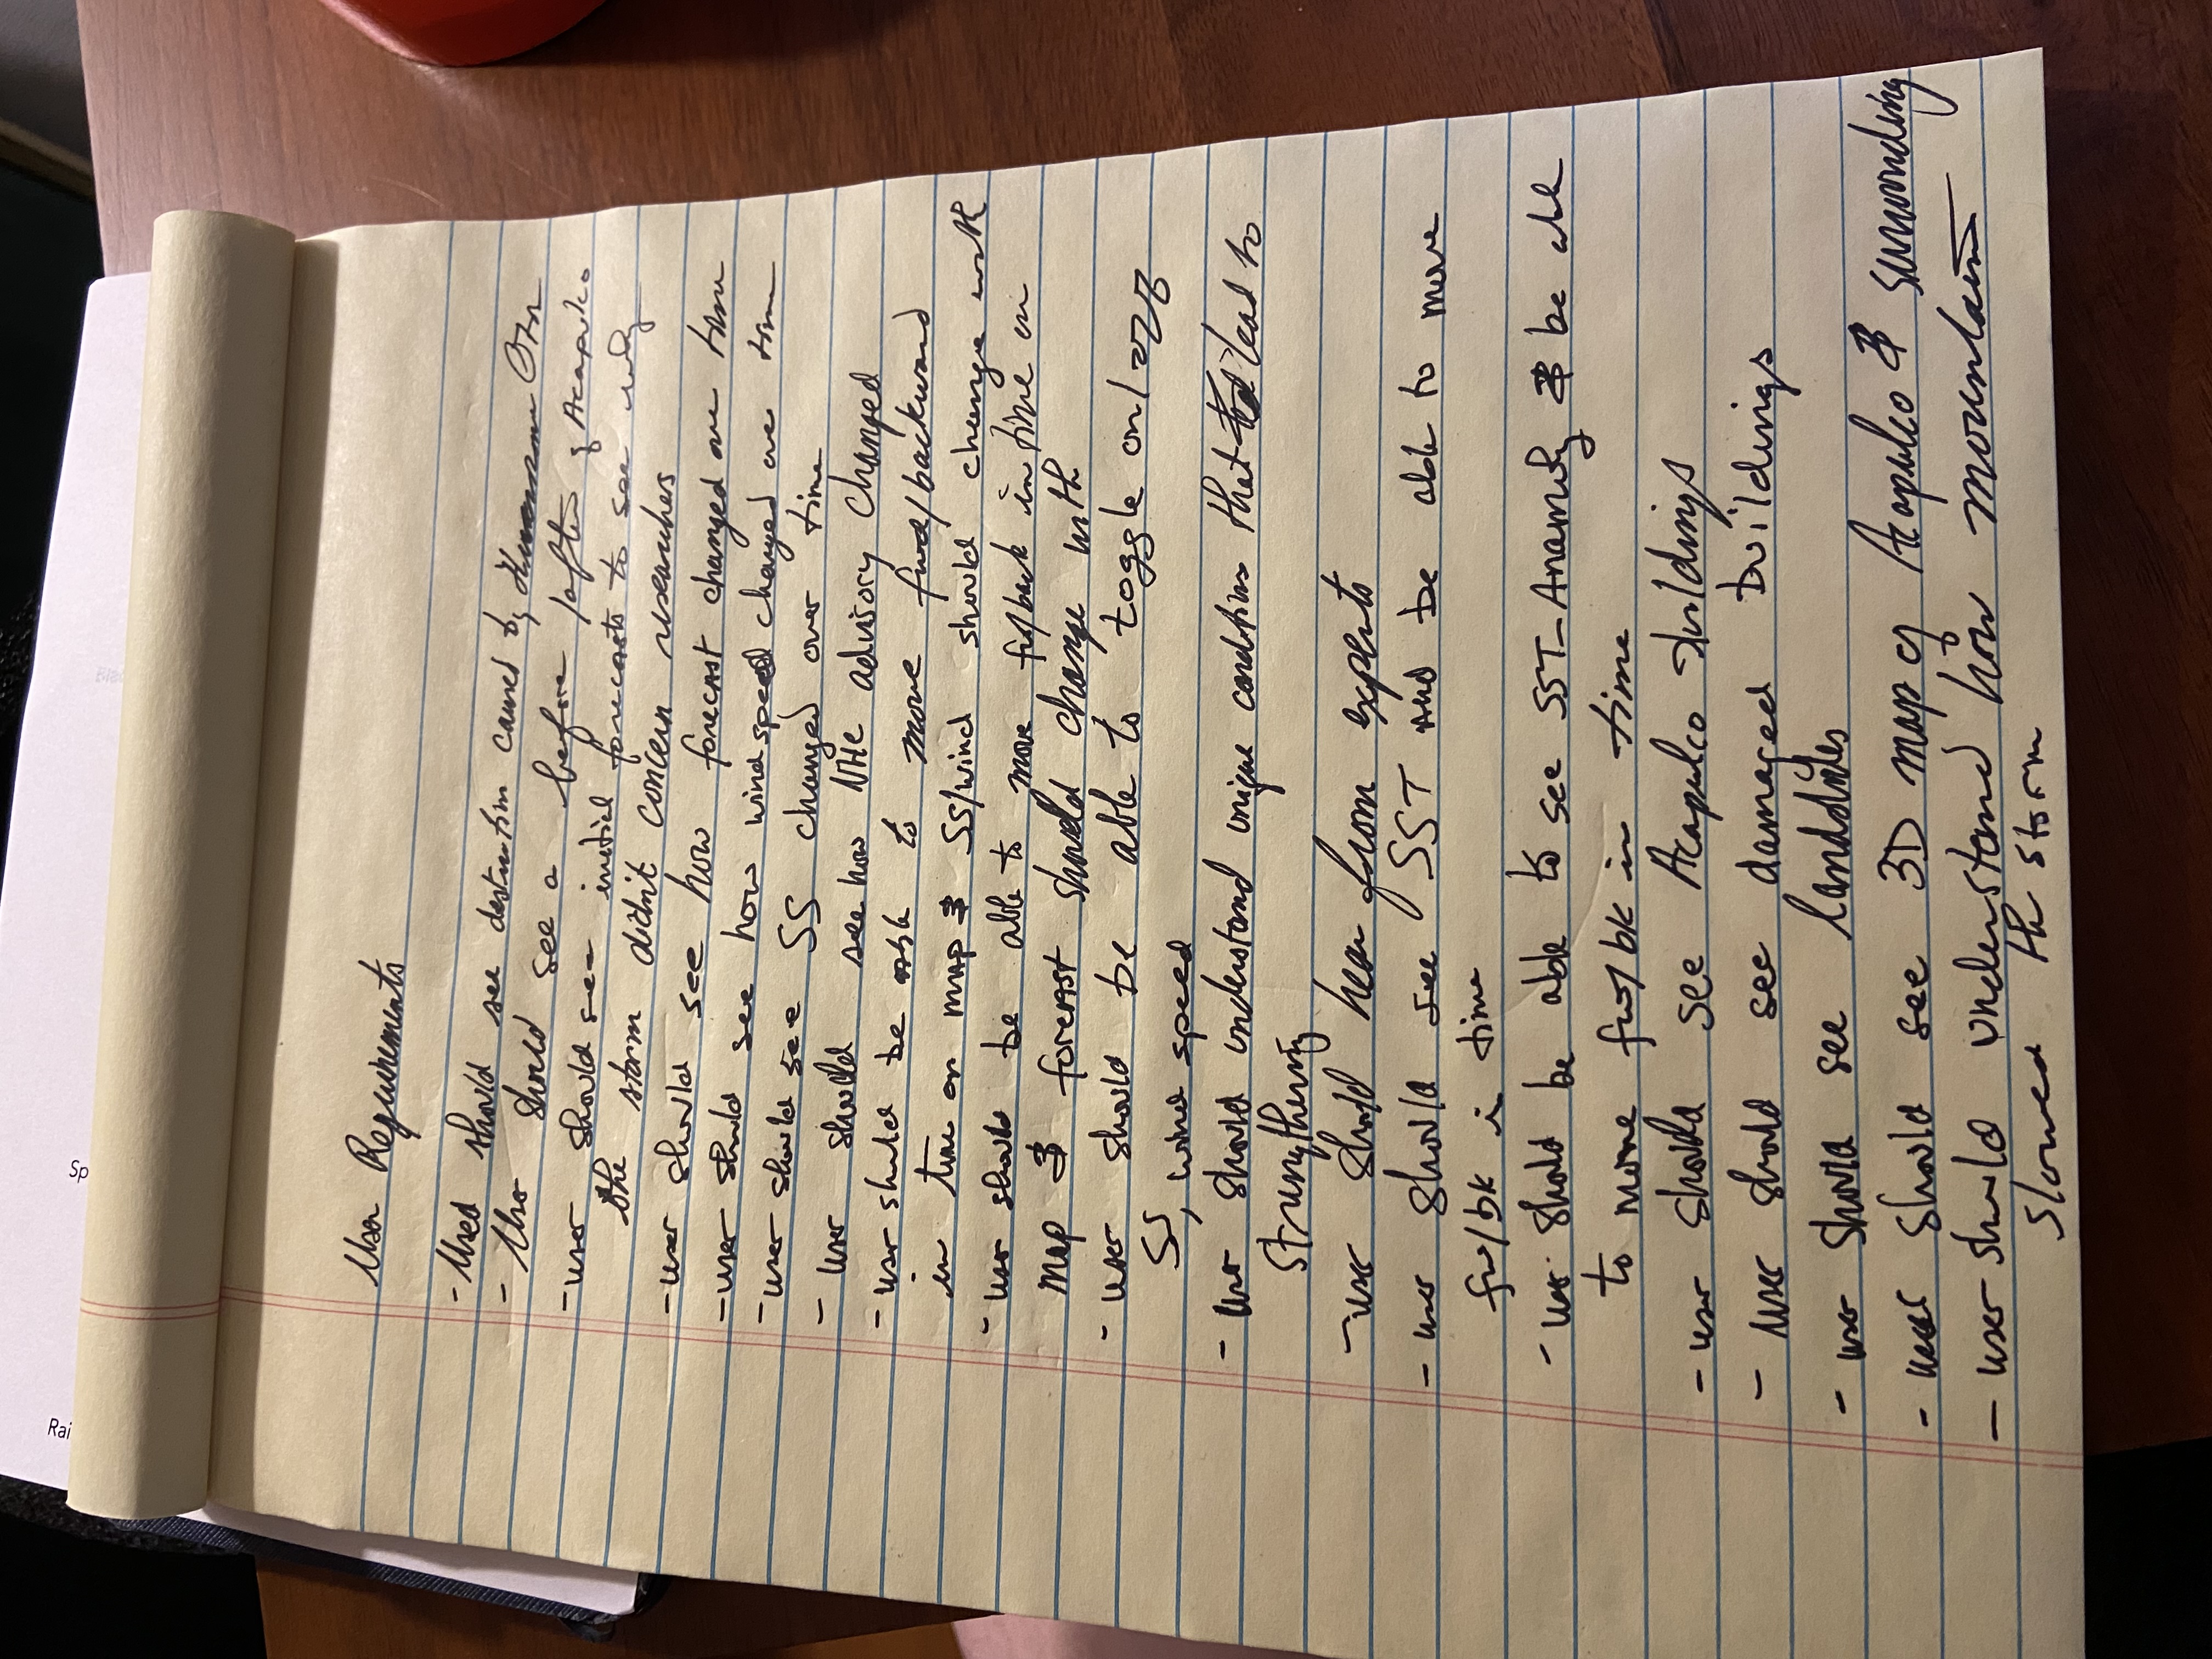 Rai
Sp
User Requirements
- Used should see destruction caused by Hurricane Otis
- User should see a before/after of Acapulco
- user should see initial forecasts to see why
the storm didn't concern researchers
- user should see how forecast changed over time
- user should see how wind speed changed over time
- user should see SS changed over time
- user should see how NHC advisory changed
- user should be able to move fwd/backward
in time on map & SS/wind should change with
- user should be able to move fw/back in time on
map & forecast should change with
- user should be able to toggle on/off
SS, wind speed
- user should understand unique conditions that lead to
strengthening
- user should hear from experts
- user should see SST and be able to move
fw/bk in time
- user should be able to see SST-Anamoly & be able
to move fw/bk in time
- user should see Acapulco buildings
- user should see damaged buildings
- user should see landslides
- user should see 3D map of Acapulco & surrounding
- user should understand how mountains
slowed the storm